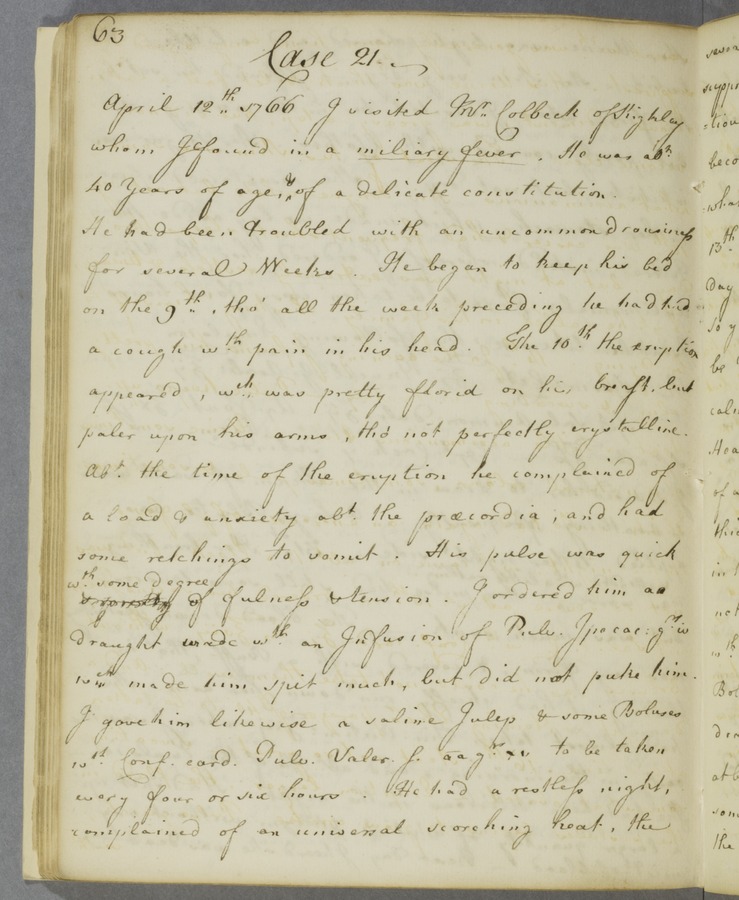 63
Case 21.
April 12th. 1766 I visited Mr. Colbeck of Kighley
whom I found in a miliary fever. He was abt.
40 Years of age, & of a delicate constitution.
He had been troubled with an uncommon drousiness
for several Weeks. He began to keep his bed
on the 9th, tho' all the week preceding he had had
a cough wth. pain in his head. The 10th. the eruption
appeared, wch. was pretty florid on his breast, but
paler upon his arms, tho' not perfectly crystalline.
Abt. the time of the eruption he complained of
a load & anxiety abt. the præcordia, and had
some retchings to vomit. His pulse was quick
wth some Degree
of fulness & tension. I ordered him a
draught made wth. an Infusion of Pulv. Ipocac: gr. iv
wch. made him spit much, but did not puke him.
I gave him likewise a saline Julep & some Boluses
wt. Conf. card. Pulv. Valer. s. aa gr. xv to be taken
every four or six hours. He had a restless night,
complained of an universal scorching heat, the
13th.
Day
be
of a
the